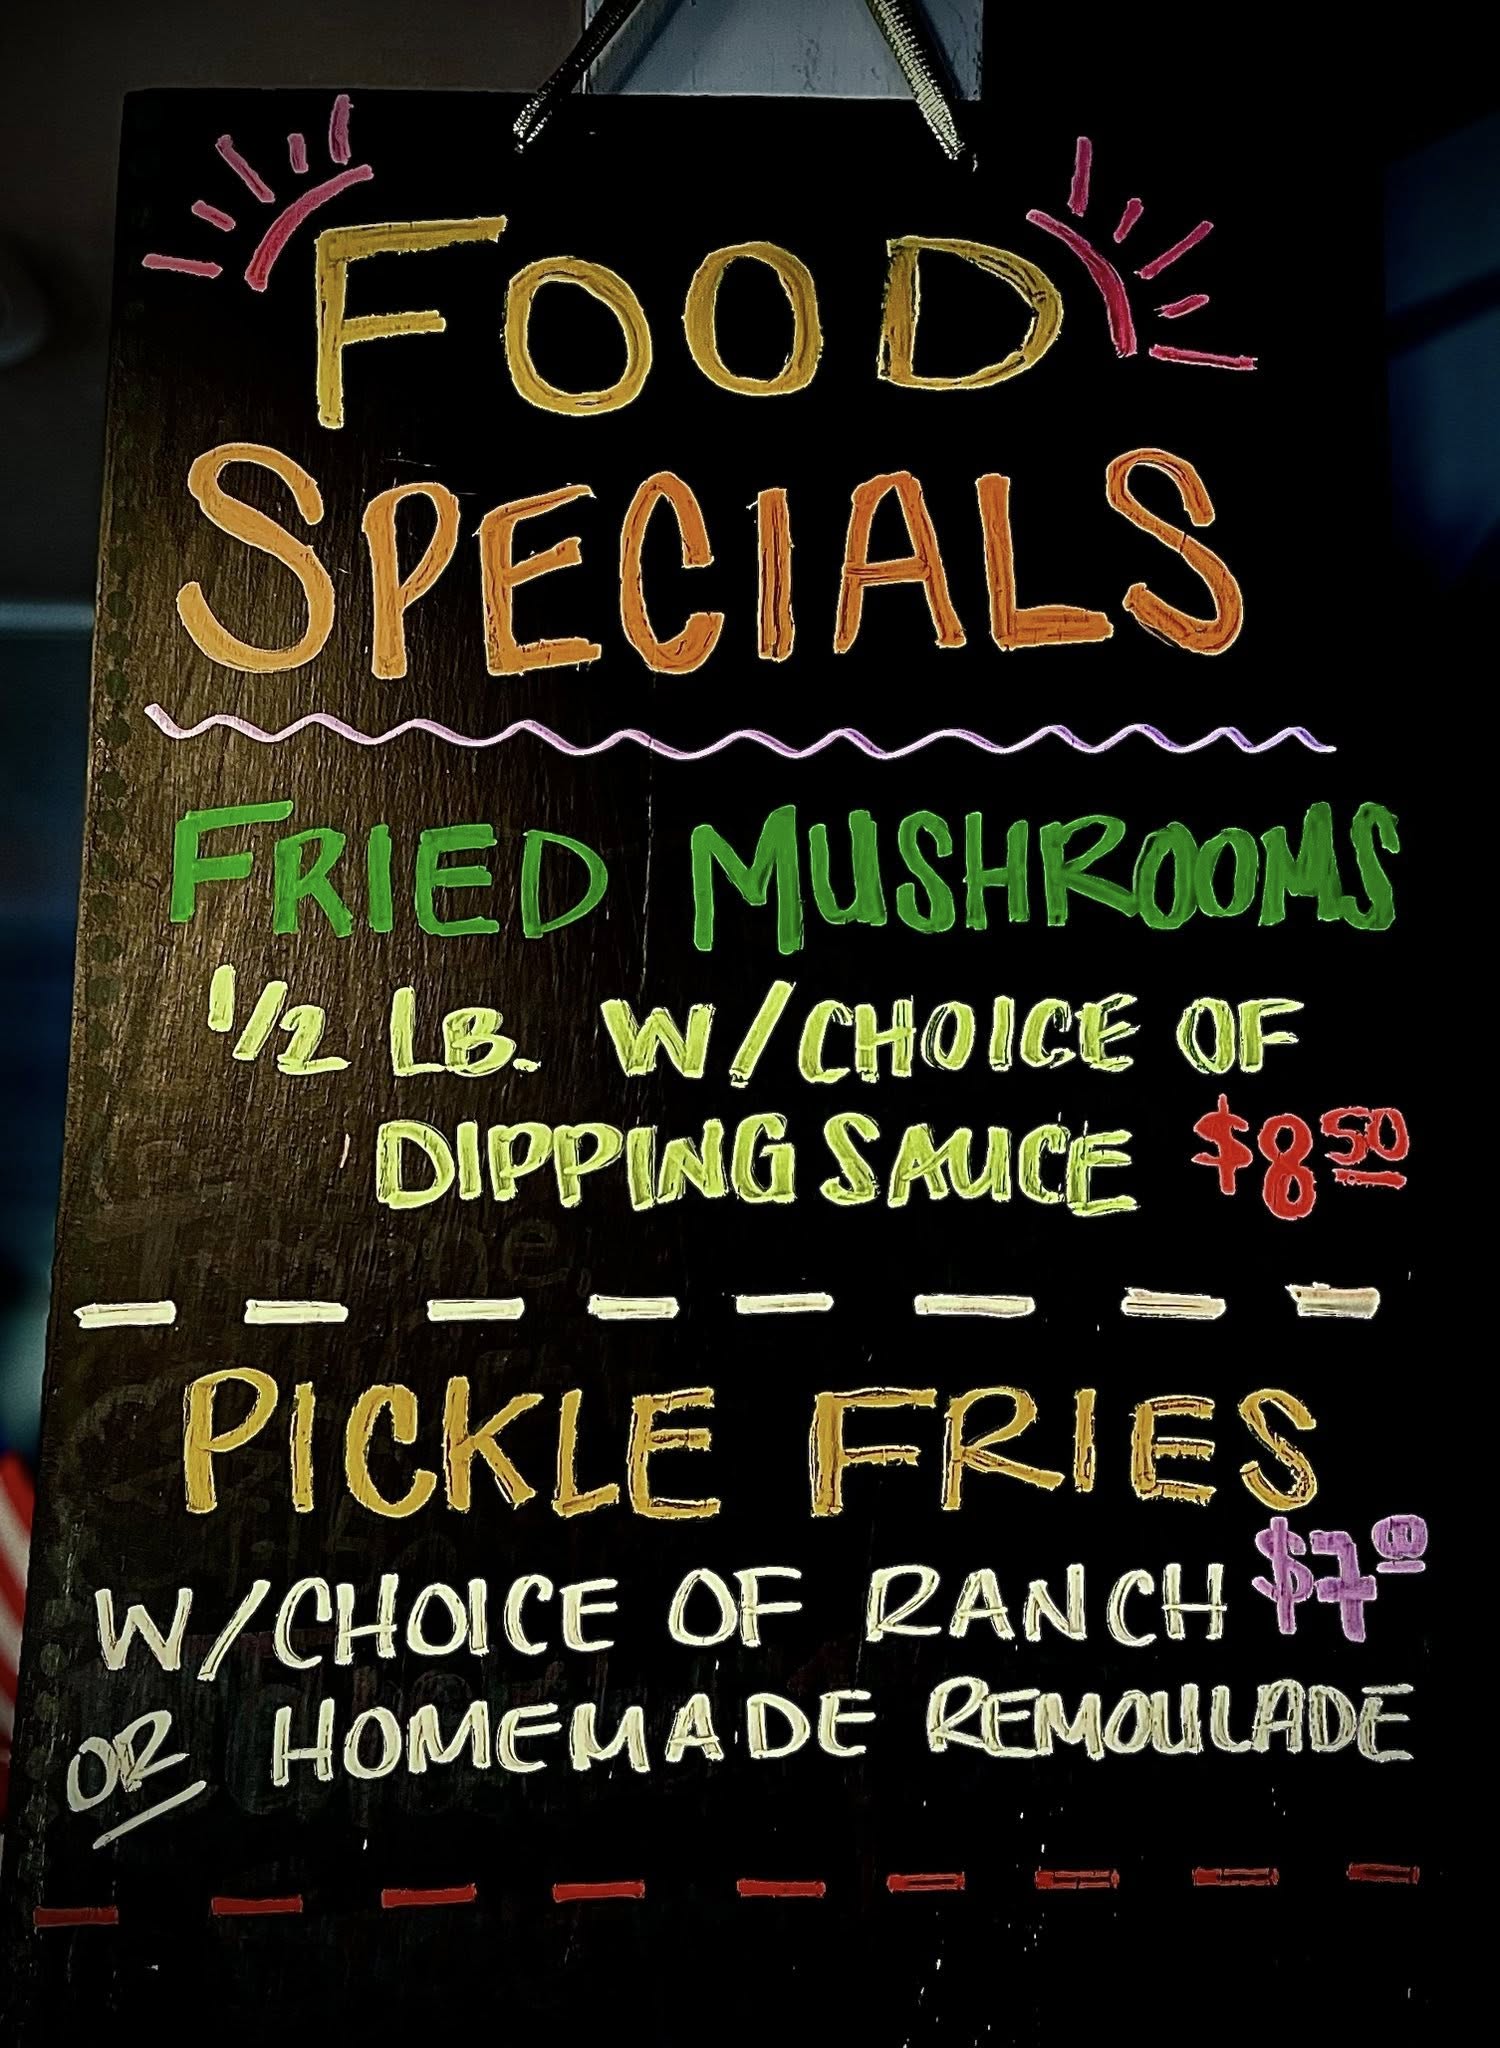 FOOD
SPECIALS
FRIED MUSHROOMS
1/2 LB. W/CHOICE OF
DIPPING SAUCE $8.50
PICKLE FRIES
W/CHOICE OF RANCH $7.00
OR HOMEMADE REMOULADE